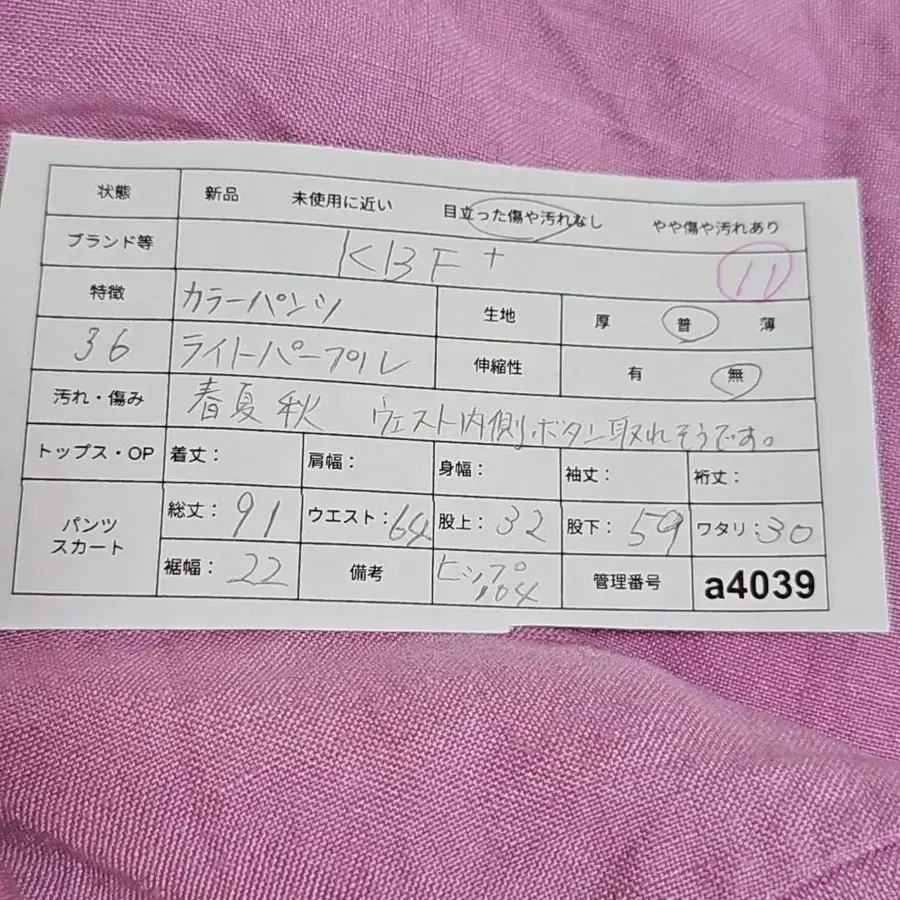 状態 新品 未使用に近い 目立った傷や汚れなし やや傷や汚れあり
ブランド等 KBF+ 11
特徴 カラーパンツ 生地 厚 普 薄
36 ライトパープル 伸縮性 有 無
汚れ・傷み 春夏秋 ウエスト内側ボタン取れそうです。
トップス・OP 着丈: 肩幅: 身幅: 袖丈: 裄丈:
パンツ スカート 総丈:91 ウエスト:64 股上:32 股下:59 ワタリ:30
裾幅:22 備考 ヒップ104 管理番号 a4039